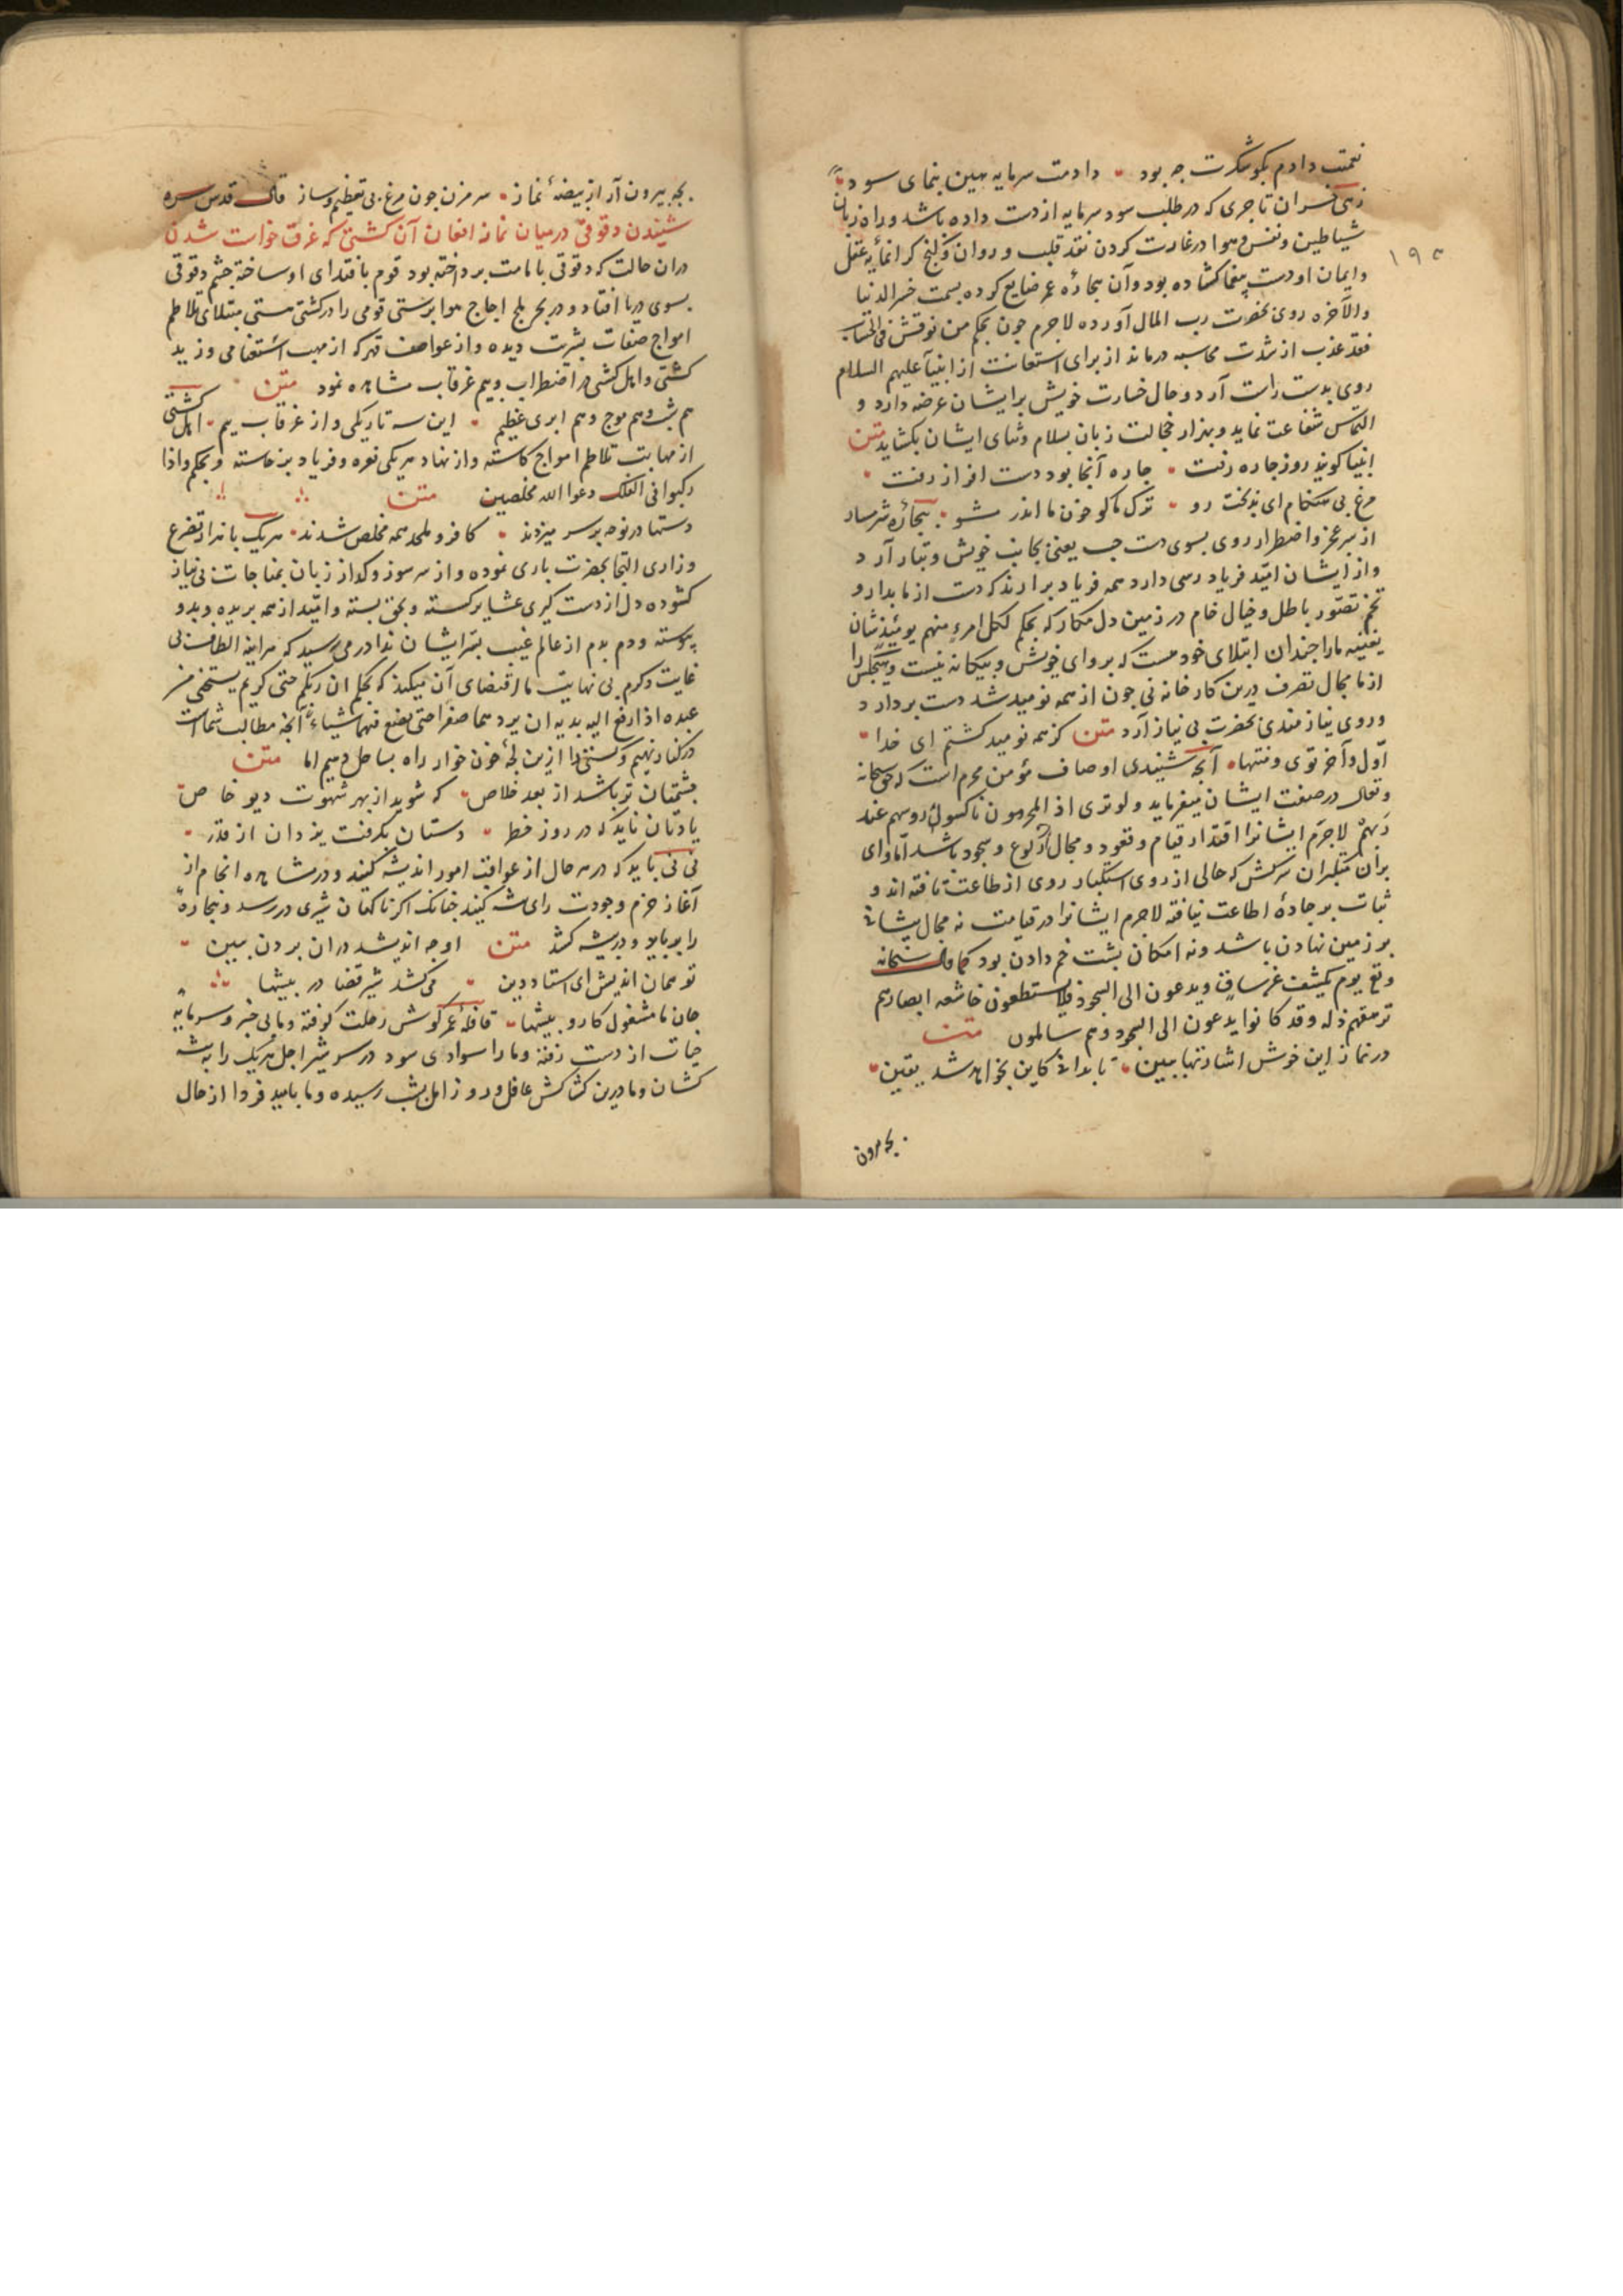 نعمتت دادم بگو شکرت چه بود دادمت سرمایه هین بنمای سود
زهی خسران تاجری که در طلب سود سرمایه از دست داده باشد و راه زنان
شیاطین و نفس و هوا در غارت کردن نقد قلب و روان و گنج کرانمایه عقل
۱۹۵
وایمان او دست یغما کشاده بود و آن بیچاره عمر ضایع کرده بسمت خسر الدنیا
والآخره روی بحضرت رب المال آورده لاجرم چون بحکم من نوقش فی الحساب
فقد عذب از شدت محاسبه درماند از برای استعانت از انبیآ علیهم السلام
روی بدست راست آرد و حال خسارت خویش بر ایشان عرضه دارد و
التماس شفاعت نماید و بهزار خجالت زبان بسلام و ثنای ایشان بکشاید متن
انبیا کویند روز چاره رفت چاره آنجا بود و دست افزار رفت
مرغ بی هنکامی ای بدبخت رو ترک ما کو خون ما اندر مشو بیچاره شرمسار
از سر عجز و اضطرار روی بسوی دست چپ یعنی بجانب خویش و تبار آرد
و از ایشان امید فریاد رسی دارد همه فریاد برارند که دست از ما بدار و
تخم تصور باطل و خیال خام در زمین دل مکار که بحکم لکل امرء منهم یومئذ شأن
یغنیه ما را چندان ابتلای خود هست که پروای خویش و بیکانه نیست و هیچکس را
از ما مجال تصرف درین کارخانه نی چون از همه نومید شد دست بردارد
و روی نیازمندی بحضرت بی نیاز آرد متن کز همه نومید کشتم ای خدا
اول و آخر توی و منتها آنچه شنیدی اوصاف مؤمن مجرم است که حق سبحانه
وتعالی در صفت ایشان میفرماید ولو تری اذ المجرمون ناکسوا رؤسهم عند
ربهم لاجرم ایشانرا اقتدار قیام و قعود و مجال رکوع و سجود باشد اما وای
بران متکبران سرکش که حالی از روی استکبار روی از طاعت تافته اند و
ثبات بر جاده اطاعت نیافته لاجرم ایشانرا در قیامت نه مجال پیشانی
بر زمین نهادن باشد و نه امکان پشت خم دادن بود کما قال سبحانه
وتع یوم یکشف عن ساق ویدعون الی السجود فلا یستطیعون خاشعه ابصارهم
ترهقهم ذله وقد کانوا یدعون الی السجود وهم سالمون متن
در نماز این خوش اشارتها ببین تا بدانی کاین بخواهد شد یقین
بچه بیرون
بچه بیرون آر از بیضه نماز سر مزن چون مرغ بی تعظیم و ساز قال قدس سره
شنیدن دقوقی درمیان نماز افغان آن کشتی که غرق خواست شدن
دران حالت که دقوقی بامامت پرداخته بود قوم باقتدای او ساخته چشم دقوقی
بسوی دریا افتاد و در بحر ملح اجاج هوا پرستی قومی را در کشتی هستی مبتلای تلاطم
امواج صفات بشریت دیده و از عواصف قهر که از مهب استغنا می وزید
کشتی و اهل کشتی در اضطراب و بیم غرقاب مشاهده نمود متن
هم شب و هم موج و هم ابری عظیم این سه تاریکی و از غرقاب بیم اهل کشتی
از مهابت تلاطم امواج کاسته و از نهاد هر یکی نعره و فریاد برخاسته و بحکم واذا
رکبوا فی الفلک دعوا الله مخلصین متن
دستها در نوحه بر سر میزدند کافر و ملحد همه مخلص شدند هر یک با هزار تضرع
و زاری التجا بحضرت باری نموده و از سر سوز و کداز زبان بمناجات بی نیاز
کشوده دل از دست کیری عشایر کسسته و بحق بسته و امید از همه بریده و بدو
پیوسته و دم بدم از عالم غیب بسر ایشان ندا در می رسید که هر آینه الطاف بی
غایت و کرم بی نهایت ما اقتضای آن میکند که بحکم ان ربکم حیی کریم یستحیی من
عبده اذا رفع الیه یدیه ان یردهما صفرا حتی یضع فیهما شیاء آنچه مطالب شماست
در کنار نهیم و کشتی را ازین لجه خون خوار راه بساحل دهیم اما متن
چشمتان تر باشد از بعد خلاص که شوید از بهر شهوت دیو خاص
یادتان ناید که در روز خطر دستتان بکرفت یزدان از قدر
نی نی باید که در هر حال از عواقب امور اندیشه کنید و در مشاهده انجام از
آغاز حزم و جودت رای پیشه کنید چنانک اکر ناکهان شیری در رسد و بیچاره
را برباید و در بیشه کشد متن او چه اندیشد دران بردن ببین
تو همان اندیش ای استاد دین می کشد شیر قضا در بیشها
جان ما مشغول کار و پیشها قافله عمر کوس رحلت کوفته و ما بی خبر و سرمایه
حیات از دست رفته و ما را سودای سود در سر و شیر اجل هر یک را به بیشه
کشان و ما درین کشاکش غافل و روز امل بشب رسیده و ما بامید فردا از حال